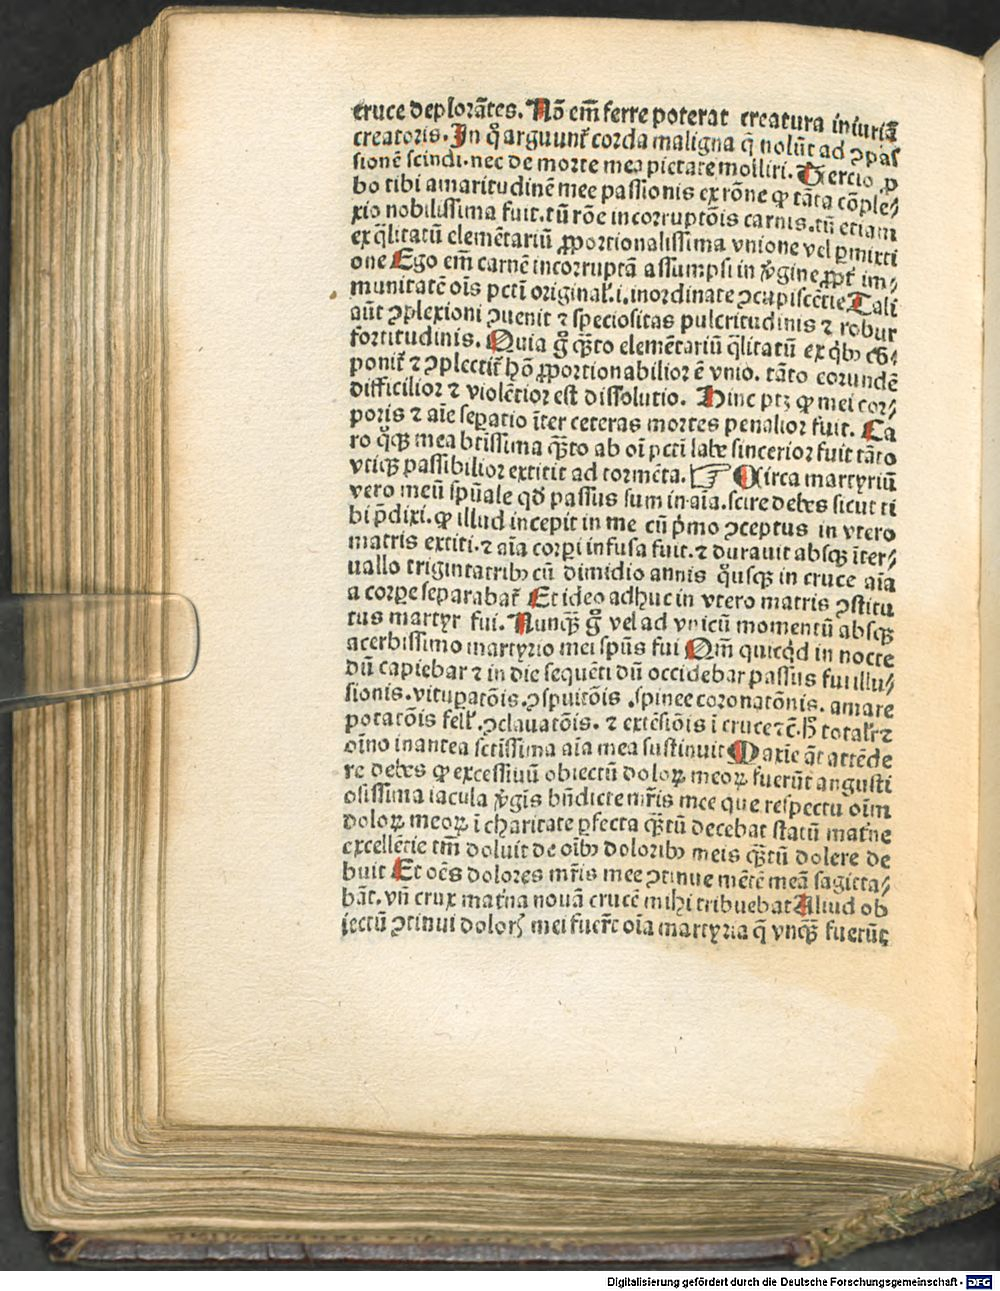 cruce deplorãtes. Nõ em̃ ferre poterat creatura iniuriã
creatoris. In q̊ arguunt᷑ corda maligna q̃ nolũt ad ꝯpas
sionẽ scindi. nec de morte mea pietate molliri. Tercio ꝓ
bo tibi amaritudinẽ mee passionis ex rõne ꝙ tãta cõple⸗
xio nobilissima fuit. tũ rõe incorruptõis carnis. tũ etiam
ex q̃litatũ elemẽtariũ ꝓportionalissima vnione vel ꝑmixti
one Ego em̃ carnẽ incorruptã assumpsi in v̾gine ꝓpt᷑ im⸗
munitatẽ oĩs pctĩ original᷑. i. inordinate ꝯcupiscẽtie Tali
aũt ꝯplexioni ꝯuenit ⁊ speciositas pulcritudinis ⁊ robur
fortitudinis. Quia g̊ q̃sto elemẽtariũ q̃litatũ ex qͥbꝰ cõ⸗
ponit᷑ ⁊ ꝯplectit᷑ hõ ꝓportionabilior ẽ vnio. tãto eorundẽ
difficilior ⁊ violẽtior est dissolutio. Hinc ptꝫ ꝙ mei cor⸗
poris ⁊ aĩe seꝑatio ĩter ceteras mortes penalior fuit. Ca
ro q̊qꝫ mea btĩssima q̃sto ab oĩ pctĩ labe sincerior fuit tãto
vtiqꝫ passibilior extitit ad tormẽta. ☞ Circa martyriũ
vero meũ spũale qđ passus sum in aĩa. scire debes sicut ti
bi p̃dixi. ꝙ illud incepit in me cũ pͥmo ꝯceptus in vtero
matris extiti. ⁊ aĩa corꝑi infusa fuit. ⁊ durauit absqꝫ ĩter⸗
uallo trigintatribꝰ cũ dimidio annis q̊usqꝫ in cruce aĩa
a corꝑe separabat᷑ Et ideo adhuc in vtero matris ꝯstitu
tus martyr fui. Nunq̃ꝫ g̊ vel ad vnicũ momentũ absqꝫ
acerbissimo martyrio mei spũs fui Qm̃ quicqͥd in nocte
dũ capiebar ⁊ in die sequẽti dũ occidebar passus fui illu⸗
sionis. vituꝑatõis. ꝯspuitõis. spinee coronatõnis. amare
potatõis fell᷑. ꝯclauatõis. ⁊ extẽsiõis ĩ cruce ⁊c̃. h̊ totalr᷑ ⁊
oĩno inantea sctĩssima aĩa mea sustinuit Maxĩe aũt attẽde
re debes ꝙ excessiuũ obiectũ doloꝝ meoꝝ fuerũt angusti
osissima iacula v̾gĩs bñdicte mr̃is mee que respectu oĩm
doloꝝ meoꝝ ĩ charitate ꝑfecta q̃ꝫtũ decebat statũ mat᷑ne
excellẽtie tm̃ doluit de oĩbꝰ doloribꝰ meis q̃ꝫtũ dolere de
buit Et oẽs dolores mr̃is mee ꝯtinue mẽtẽ meã sagitta⸗
bãt. vñ crux mat᷑na nouã crucẽ mihi tribuebat Aliud ob
iectũ ꝯtinui dolorꝭ mei fuer̃t oĩa martyria q̃ vnq̃ꝫ fuerũt
Digitalisierung gefördert durch die Deutsche Forschungsgemeinschaft - DFG